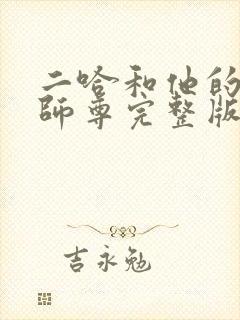 二哈和他的
師尊完整版
吉永勉